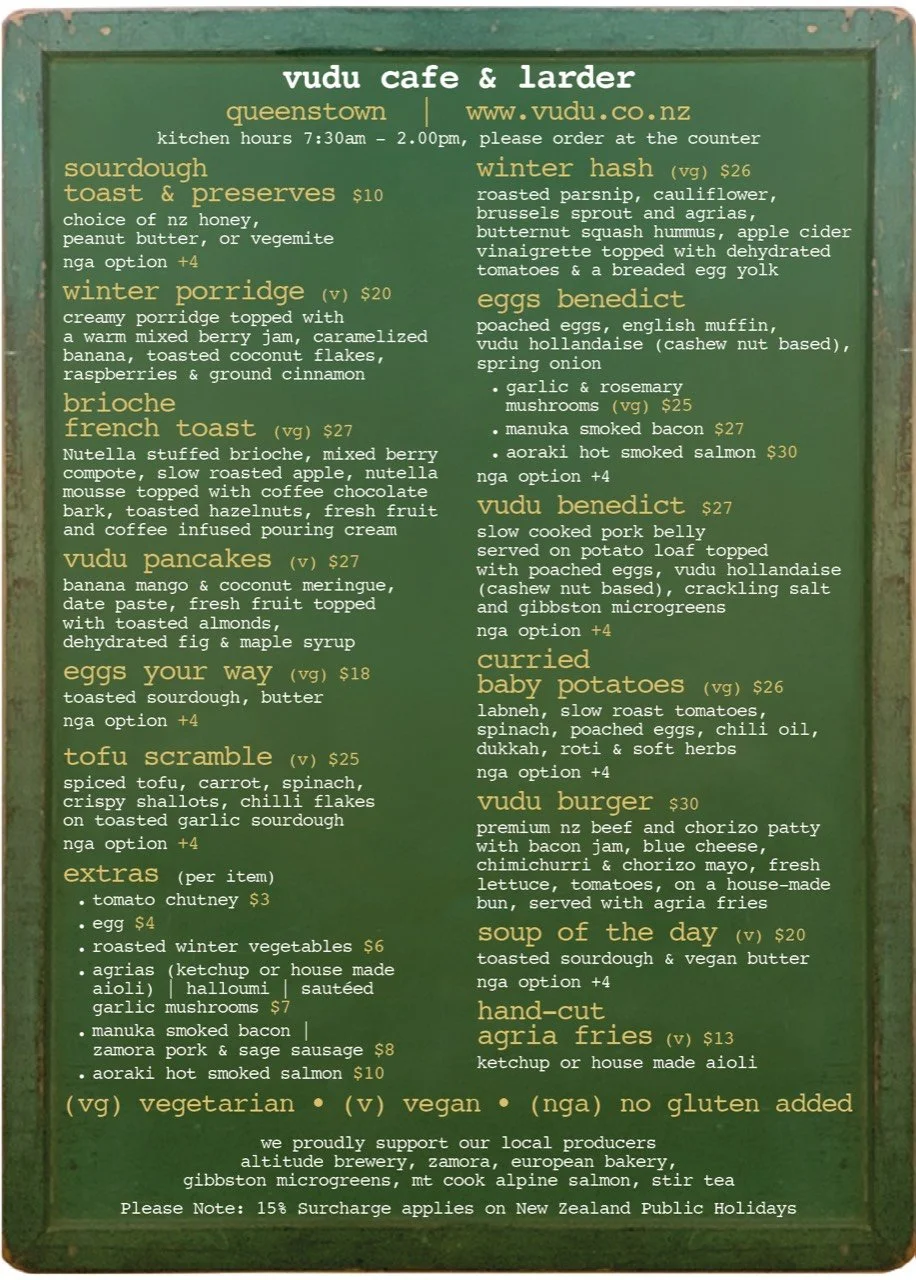 vudu cafe & larder
queenstown | www.vudu.co.nz
kitchen hours 7:30am - 2.00pm, please order at the counter
sourdough
toast & preserves $10
choice of nz honey,
peanut butter, or vegemite
nga option +4
winter porridge (v) $20
creamy porridge topped with
a warm mixed berry jam, caramelized
banana, toasted coconut flakes,
raspberries & ground cinnamon
brioche
french toast (vg) $27
Nutella stuffed brioche, mixed berry
compote, slow roasted apple, nutella
mousse topped with coffee chocolate
bark, toasted hazelnuts, fresh fruit
and coffee infused pouring cream
vudu pancakes (v) $27
banana mango & coconut meringue,
date paste, fresh fruit topped
with toasted almonds,
dehydrated fig & maple syrup
eggs your way (vg) $18
toasted sourdough, butter
nga option +4
tofu scramble (v) $25
spiced tofu, carrot, spinach,
crispy shallots, chilli flakes
on toasted garlic sourdough
nga option +4
extras (per item)
• tomato chutney $3
• egg $4
• roasted winter vegetables $6
• agrias (ketchup or house made
aioli) | halloumi | sautéed
garlic mushrooms $7
• manuka smoked bacon |
zamora pork & sage sausage $8
• aoraki hot smoked salmon $10
winter hash (vg) $26
roasted parsnip, cauliflower,
brussels sprout and agrias,
butternut squash hummus, apple cider
vinaigrette topped with dehydrated
tomatoes & a breaded egg yolk
eggs benedict
poached eggs, english muffin,
vudu hollandaise (cashew nut based),
spring onion
• garlic & rosemary
mushrooms (vg) $25
• manuka smoked bacon $27
• aoraki hot smoked salmon $30
nga option +4
vudu benedict $27
slow cooked pork belly
served on potato loaf topped
with poached eggs, vudu hollandaise
(cashew nut based), crackling salt
and gibbston microgreens
nga option +4
curried
baby potatoes (vg) $26
labneh, slow roast tomatoes,
spinach, poached eggs, chili oil,
dukkah, roti & soft herbs
nga option +4
vudu burger $30
premium nz beef and chorizo patty
with bacon jam, blue cheese,
chimichurri & chorizo mayo, fresh
lettuce, tomatoes, on a house-made
bun, served with agria fries
soup of the day (v) $20
toasted sourdough & vegan butter
nga option +4
hand-cut
agria fries (v) $13
ketchup or house made aioli
(vg) vegetarian • (v) vegan • (nga) no gluten added
we proudly support our local producers
altitude brewery, zamora, european bakery,
gibbston microgreens, mt cook alpine salmon, stir tea
Please Note: 15% Surcharge applies on New Zealand Public Holidays